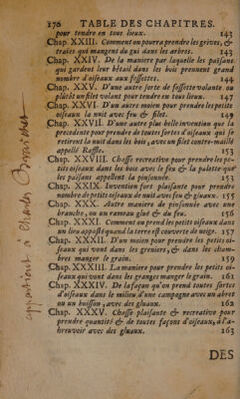 170 TABLE DES CHAPITRES.
pour tendre en tous lieux. 143
Chap. XXIII. Comment on pourra prendre les grives, &
traises qui mangent du gui dans les arbres. 143
Chap. XXIV. De la maniere par laquelle les païsans
qui gardent leur bétail dans les bois prennent grand
nombre d'oiseaux aux fossettes. 144
Chap. XXV. D'une autre sorte de fossette volante ou
plûtôt un filet volant pour tendre en tous lieux. 147
Chap. XXVI. D'un autre moien pour prendre les petits
oiseaux la nuit avec feu & filet. 149
Chap. XXVII. D'une autre plus belle invention que la
precedente pour prendre de toutes sortes d'oiseaux qui se
retirent la nuit dans les bois, avec un filet contre-maillé
appellé Rafle. 153
Chap. XXVIII. Chasse recreative pour prendre les pe-
tits oiseaux dans les bois avec le feu & la palette que
les païsans appellent la pinsonnée. 153
Chap. XXIX. Invention fort plaisante pour prendre
nombre de petits oiseaux de nuit avec feu & gluaux. 155
Chap. XXX. Autre maniere de pinsonnée avec une
branche, ou un rameau glué & du feu. 156
Chap. XXXI. Comment on prend les petits oiseaux dans
un lieu apposté quand la terre est couverte de neige. 157
Chap. XXXII. D'un moien pour prendre les petits oi-
seaux qui vont dans les greniers, & dans les cham-
bres manger le grain. 159
Chap. XXXIII. La maniere pour prendre les petits oi-
seaux qui vont dans les granges manger le grain. 161
Chap. XXXIV. De la façon qu'on prend toutes sortes
d'oiseaux dans le milieu d'une campagne avec un abret
ou un buisson, avec des gluaux. 162
Chap. XXXV. Chasse plaisante & recreative pour
prendre quantité & de toutes façons d'oiseaux, à l'a-
breuvoir avec des gluaux. 163
DES
appartient à Charles